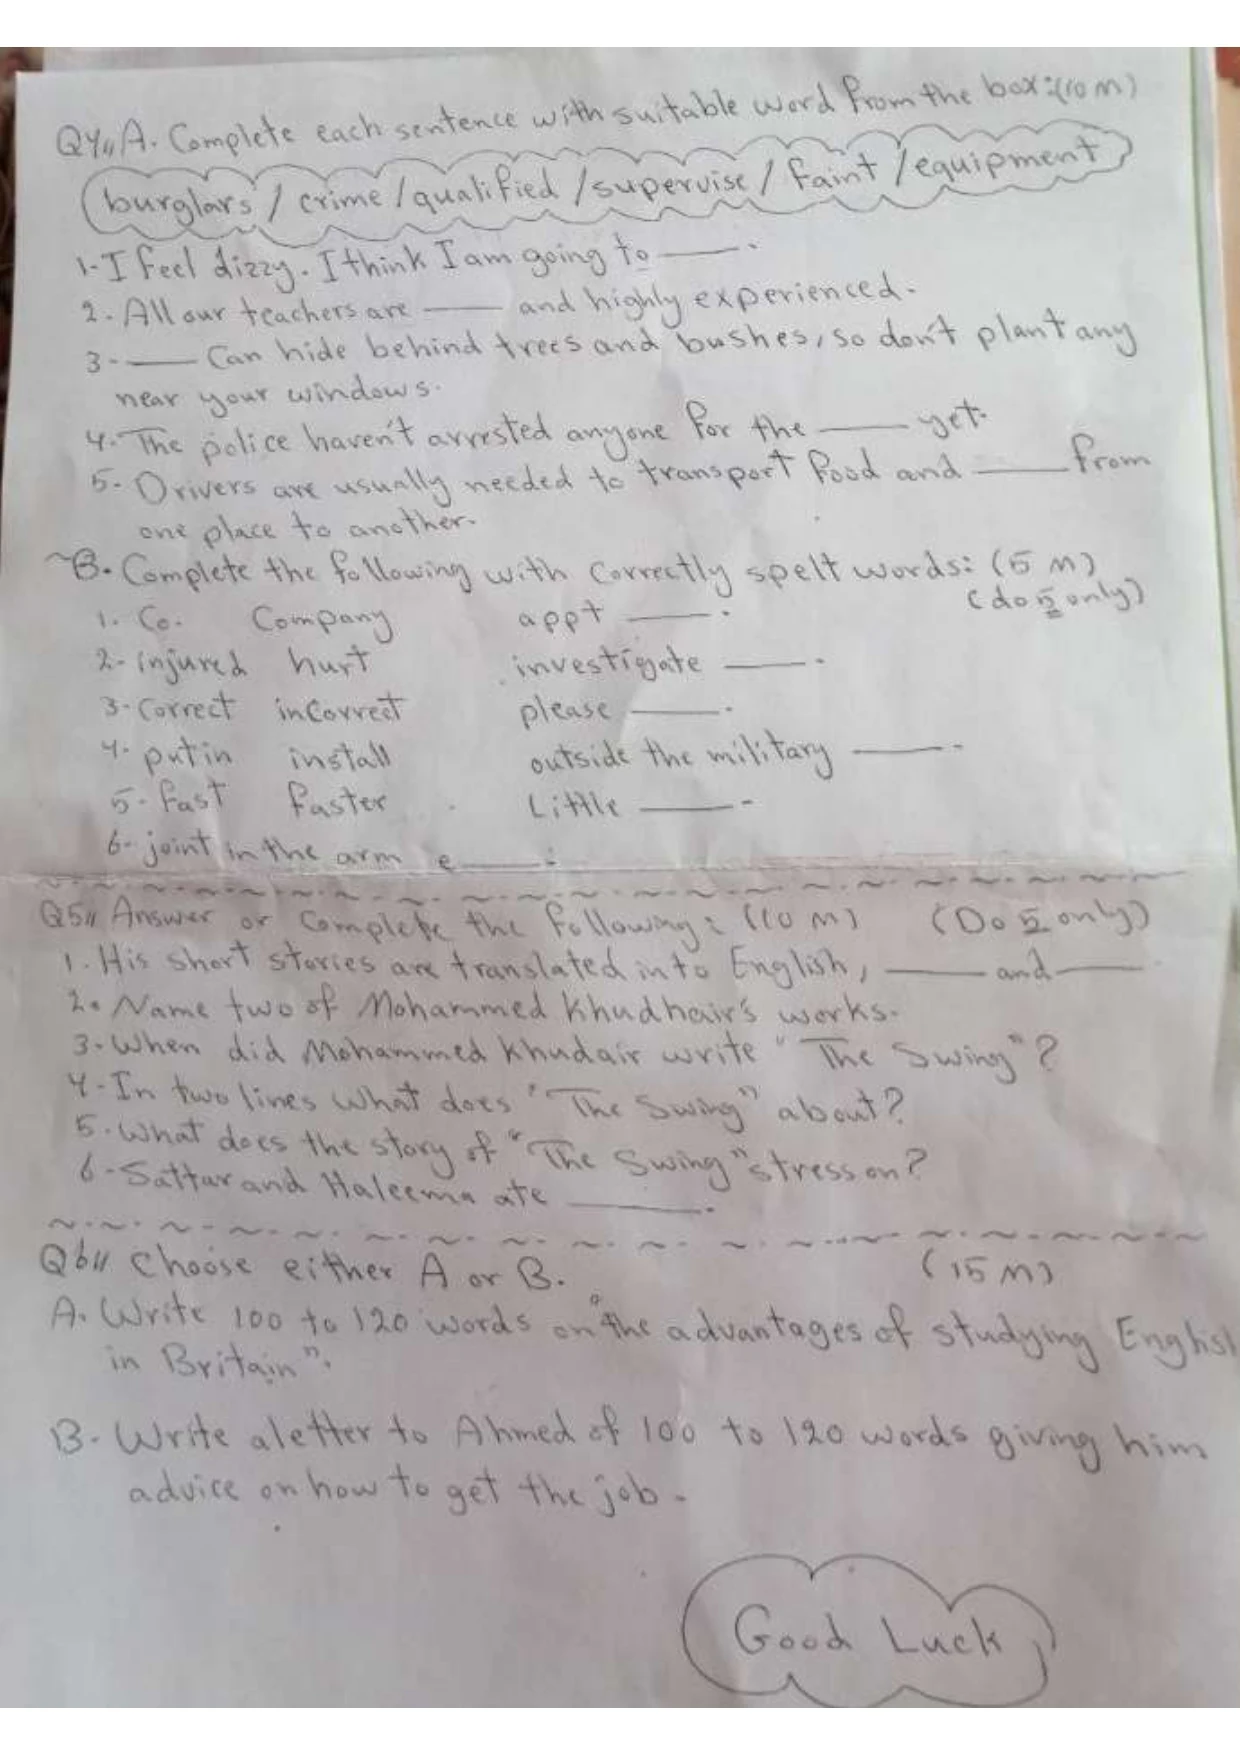 Q4,, A. Complete each sentence with suitable word from the box: (10 M)
burglars / crime / qualified / supervise / faint / equipment
1- I feel dizzy. I think I am going to ____ .
2. All our teachers are ____ and highly experienced.
3- ____ Can hide behind trees and bushes, so don't plant any
near your windows.
4. The police haven't arrested anyone for the ____ yet.
5- Drivers are usually needed to transport food and ____ from
one place to another.
B. Complete the following with correctly spelt words: (5 M)
(do 5 only)
1. Co. Company appt ____ .
2- injured hurt investigate ____ .
3- Correct incorrect please ____ .
4. put in install outside the military ____ .
5- fast faster Little ____ .
6- joint in the arm e____ .
Q5,, Answer or Complete the following: (10 M) (Do 5 only)
1. His short stories are translated into English, ____ and ____
2. Name two of Mohammed Khudhair's works.
3- When did Mohammed Khudair write "The Swing"?
4- In two lines what does "The Swing" about?
5. What does the story of "The Swing" stress on?
6- Sattar and Haleema ate ____ .
Q6,, Choose either A or B. (15 M)
A. Write 100 to 120 words on "the advantages of studying Englis
in Britain".
B- Write a letter to Ahmed of 100 to 120 words giving him
advice on how to get the job.
Good Luck